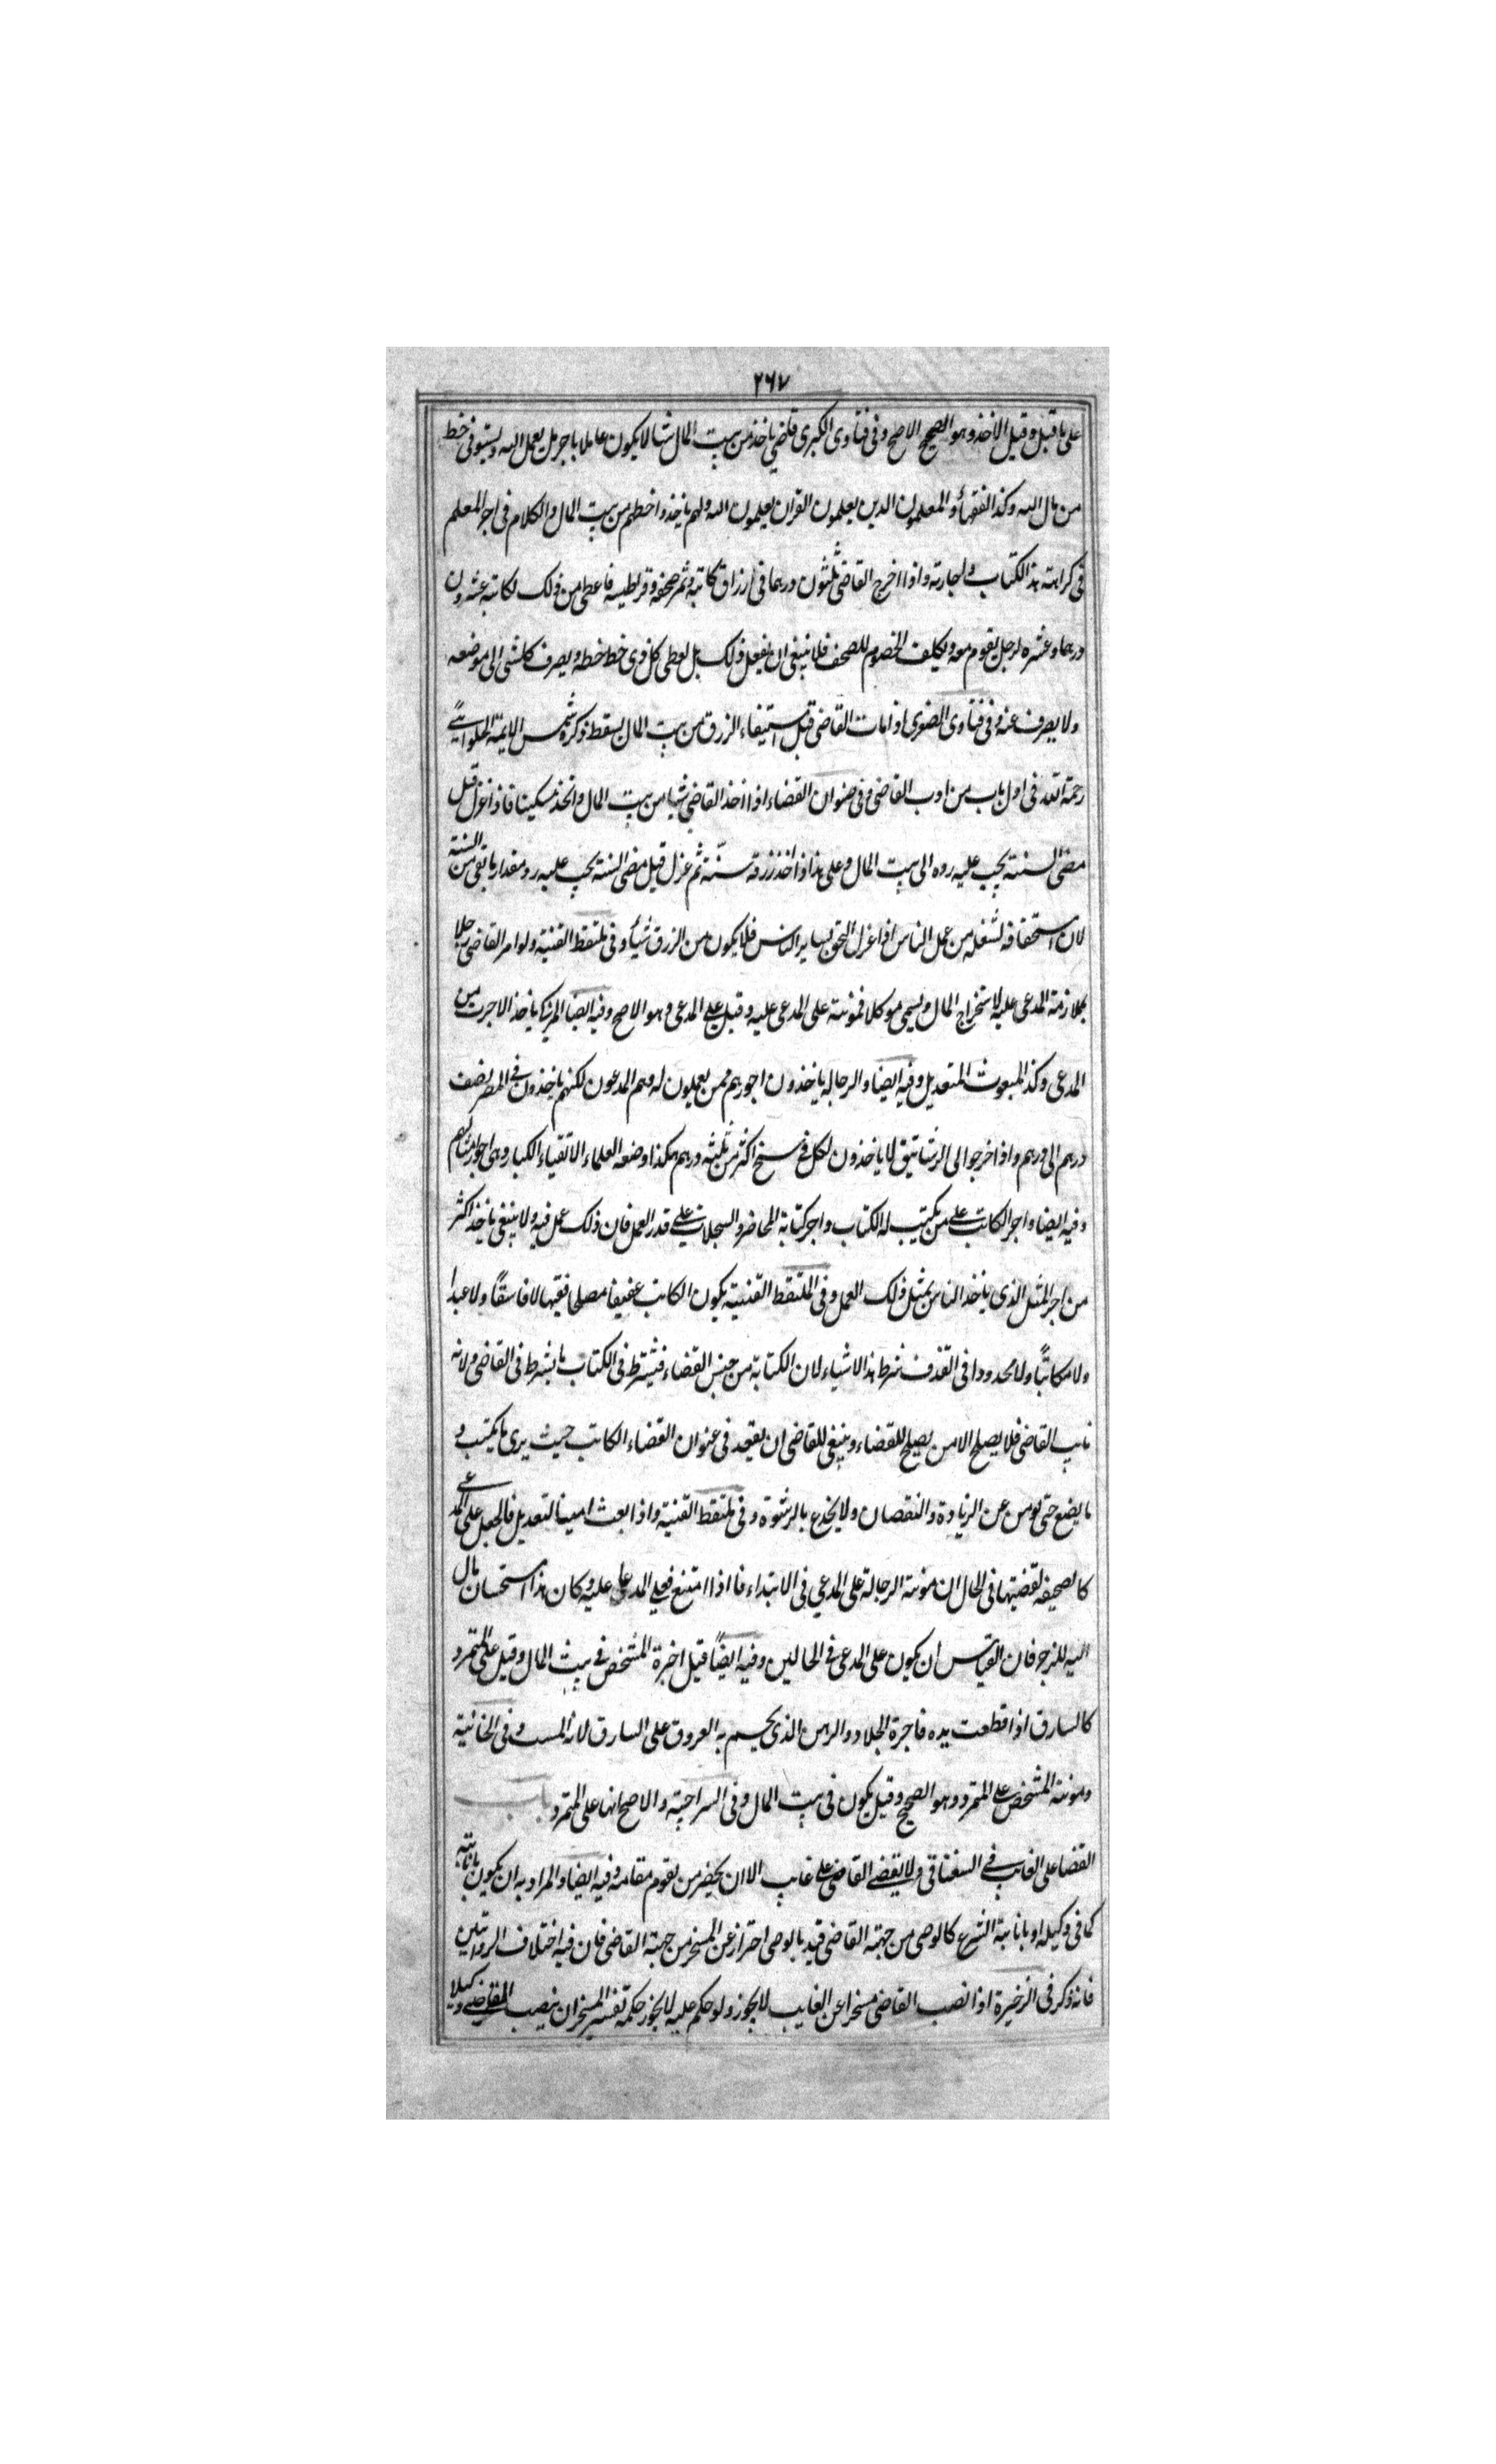 ٢٦٧
على ما قيل وقيل الاخذ وهو الصحيح الاصح وفى فتاوى الكبرى قاضى ياخذ من بيت المال شيا لا يكون عاملا باجر بل يعمل الله ويستوفى خط
من مال الله وكذا الفقهاء والمعلمون الدين يعلمون القران يعلمون الله ولهم ياخذوا خطهم من بيت المال والكلام فى اجر المعلم
فى كراهته هذ الكتاب والجارته واذا اخرج القاضى ثلثون درهما فى ارزاق كاتبه وثمر صحفه وقراطيسه فاعطى من ذلك لكاتبه عشرون
درهما وعشره لرجل يقوم معه ويكلف الخصوم للصحف فلا ينبغى ان يفعل ذلك بل يعطى كل ذى خط خطه ويصرف كل شئ الى موضعه
ولا يصرف عنه وفى فتاوى الصغرى اذا مات القاضى قبل استيفاء الرزق من بيت المال يسقط ذكره شمس الايمة الحلوايى
رحمة الله تعه فى اول باب من ادب القاضى وفى عنوان القضاء اذا اخذ القاضى شيا من بيت المال واتخذ مسكينا فاذا عزل قبل
مضى السنة يجب عليه رده الى بيت المال وعلى هذا اذا اخذ رزقه سنة ثم عزل قبل مضى السنة يجب عليه رد مقدار ما بقى من السنة
لان استحقاقه لشغله من عمل الناس اذا عزل التحق بساير الناس فلا يكون من الرزق شيأ وفى ملتقط القنية ولو امر القاضى رجلا
بملازمة المدعى عليه لاستخراج المال ويسمى موكلا فمونته على المدعى عليه وقيل على المدعى وهو الاصح وفيه ايضا المزكى ياخذ الاجرت من
المدعى وكذ المبعوث للتعديل وفيه ايضا والرجاله ياخذون اجورهم ممن يعملون له وهم المدعون لكنهم ياخذون فى المصر نصف
درهم الى درهم واذا خرجوا الى الرشاتيق لا ياخذون لكل فرسخ اكثر من ثلثه درهم هكذا وضعه العلماء الاتقياء الكبار وهى اجور امثالهم
وفيه ايضا واجر الكاتب على من يكتب له الكتاب واجر كتابة المحاضر والسجلات على قدر العمل فان ذلك عمل فيه ولا ينبغى ياخذ اكثر
من اجر المثل الذى ياخذ الناس بمثل ذلك العمل وفى الملتقط القنية يكون الكاتب عفيفا مصلحا فقيها لا فاسقًا ولا عبدا
ولا مكاتبًا ولا محدودا فى القذف شرط هذ الاشياء لان الكتابة من جنس القضاء فيشترط فى الكتاب ما يشرط فى القاضى ولانه
نايب القاضى فلا يصلح الا من يصلح للقضاء وينبغى للقاضى ان يقعد فى عنوان القضاء الكاتب حيث يرى ما يكتب و
ما يضع حتى يومن عن الزيادة والنقصان ولا يخدع بالرشوة وفى ملتقط القنية واذا بعث امينا لتعديل فالجعل على المدعى
كالصحيفه لقضيتها فى الحال ان مونته الرجالة على المدعى فى الابتداء فا اذا امتنع فعلى المدعا عليه وكان هذا استحسان مال
اليه للزجر فان القياس ان يكون على المدعى فى الحالين وفيه ايضًا قيل اخرة المشخص فى بيت المال وقيل على المتمرد
كالسارق اذا قطعت يده فاجرة الجلاد والدهن الذى يحسم به العروق على السارق لانه المست وفى الخانية
ومونته المشخص على المتمرد وهو الصحيح وقيل يكون فى بيت المال وفى السراجية والاصح انها على المتمرد باب
القضا على الغايب فى السغناقى ولا يقضى القاضى على غايب الا ان يحضر من يقوم مقامه وفيه ايضا والمراد به ان يكون بانابته
كما فى وكيله او بانابة الشرع كالوصى من جهة القاضى قيد بالوصى احتراز عن المسخر من جهة القاضى فان فيه اختلاف الروايتين
فانه ذكر فى الزخيرة اذا نصب القاضى مسخرا عن الغايب لا يجوز ولو حكم عليه لا يجوز حكمه تفسير المسخر ان ينصب القاضى وكيلا